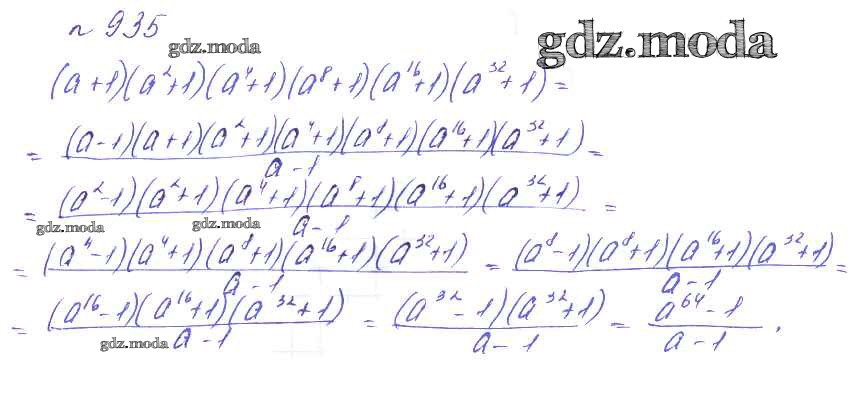 n 935
gdz.moda
gdz.moda
(a+1)(a²+1)(a⁴+1)(a⁸+1)(a¹⁶+1)(a³²+1) =
= (a-1)(a+1)(a²+1)(a⁴+1)(a⁸+1)(a¹⁶+1)(a³²+1) =
a-1
= (a²-1)(a²+1)(a⁴+1)(a⁸+1)(a¹⁶+1)(a³²+1) =
a-1
gdz.moda
gdz.moda
= (a⁴-1)(a⁴+1)(a⁸+1)(a¹⁶+1)(a³²+1) = (a⁸-1)(a⁸+1)(a¹⁶+1)(a³²+1) =
a-1 a-1
= (a¹⁶-1)(a¹⁶+1)(a³²+1) = (a³²-1)(a³²+1) = a⁶⁴-1 .
a-1 a-1 a-1
gdz.moda